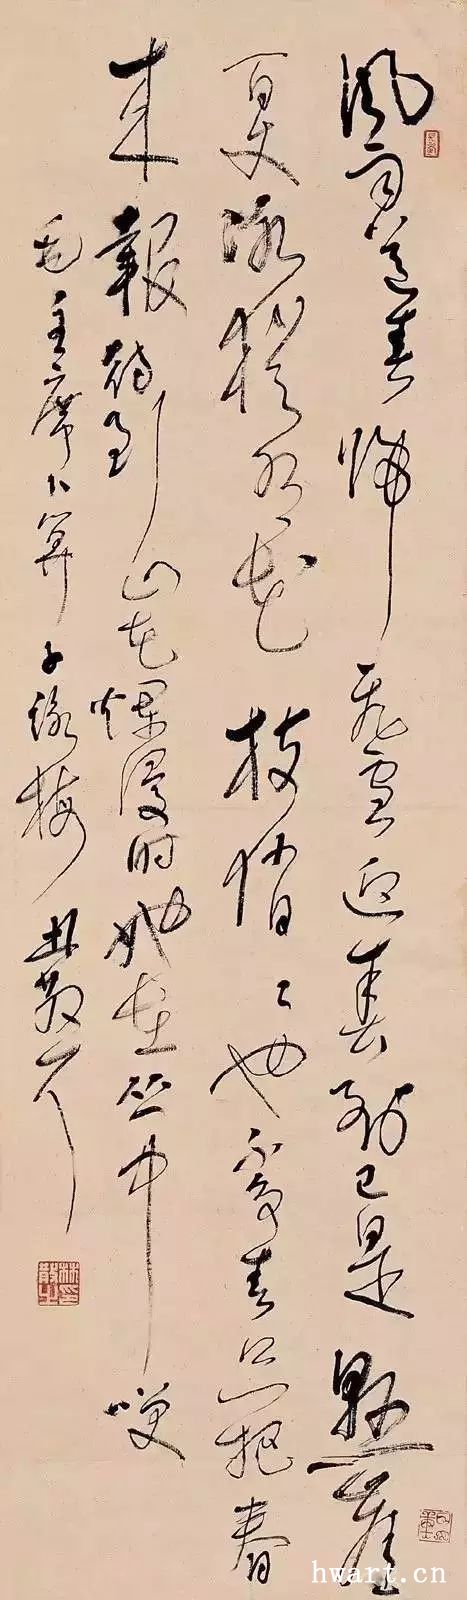 風雨送春歸飛雪迎春到已是懸崖
百丈冰猶有花枝俏〻也不争春只把春
来報待到山花爛漫时她在丛中咲
毛主席卜算子詠梅 林散耳
林散之印
hwart.cn